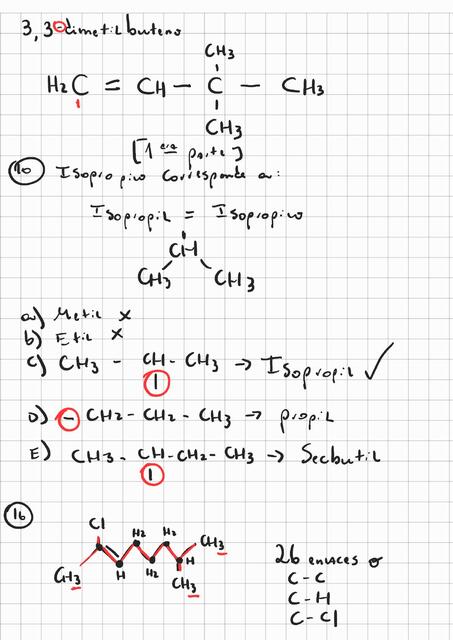 3,3-dimetil buteno
CH3
H2C = CH - C - CH3
CH3
[1era parte]
10 Isopropilo corresponde a:
Isopropil = Isopropilo
CH
CH3 CH3
a) Metil x
b) Etil x
c) CH3 - CH - CH3 → Isopropil ✓
D) - CH2 - CH2 - CH3 → propil
E) CH3 - CH - CH2 - CH3 → Secbutil
16
Cl
H2 H2 CH3
CH3 H H2 H
CH3
26 enlaces σ
C - C
C - H
C - Cl